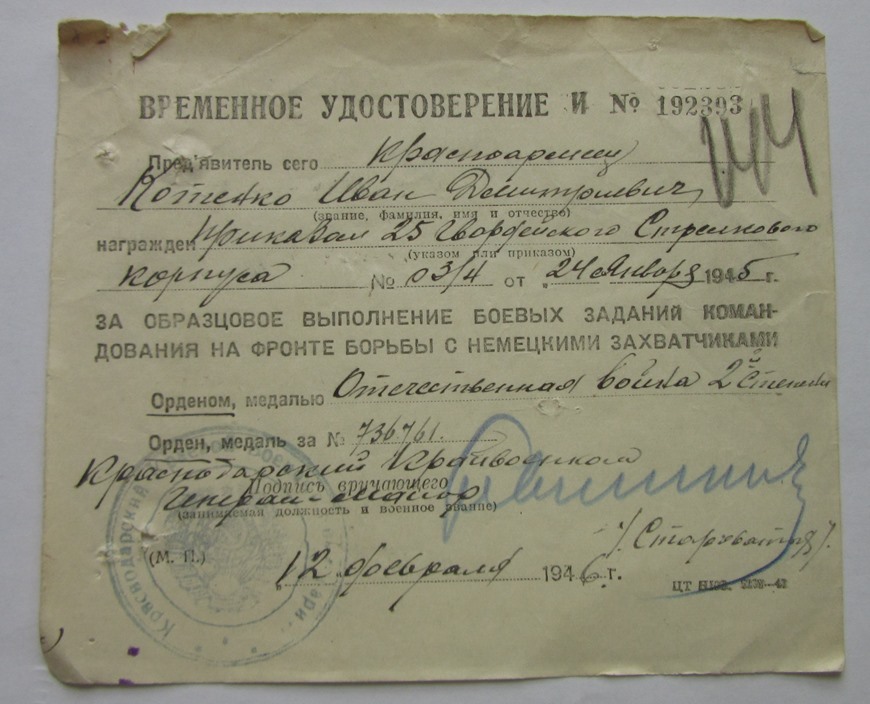 ВРЕМЕННОЕ УДОСТОВЕРЕНИЕ И № 192393
Пред'явитель сего Красноармеец
Котенко Иван Дмитриевич
(звание, фамилия, имя и отчество)
награжден Приказом 25 Гвардейского Стрелкового
(указом или приказом)
корпуса № 03/4 от „24" Января 1945 г.
ЗА ОБРАЗЦОВОЕ ВЫПОЛНЕНИЕ БОЕВЫХ ЗАДАНИЙ КОМАН-
ДОВАНИЯ НА ФРОНТЕ БОРЬБЫ С НЕМЕЦКИМИ ЗАХВАТЧИКАМИ
Орденом, медалью Отечественная война 2й степени
Орден, медаль за № 736761.
Краснодарский Крайвоенком
Подпись вручающего
Генерал-Майор
(занимаемая должность и военное звание)
(М. П.)
„12 февраля 1946 г.
ЦТ
Краснодарский